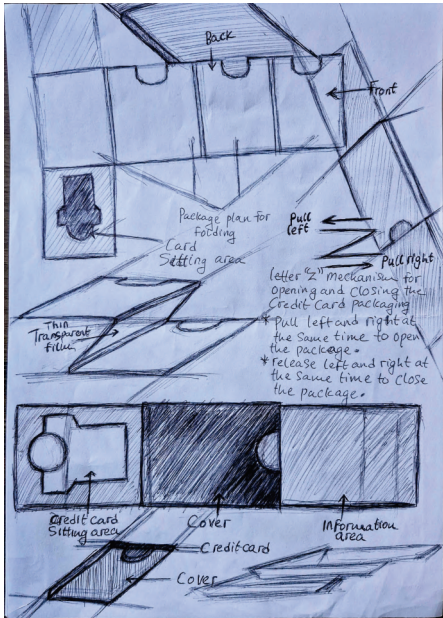 Back
Front
Package plan for
folding
Card
Sitting area
Pull
left
Pull right
letter "Z" mechanism for
opening and closing the
Credit Card packaging
* Pull left and right at
the same time to open
the package.
* release left and right at
the same time to close
the package.
Thin
Transparent
film
Credit card
Sitting area
Cover
Information
area
Credit card
Cover